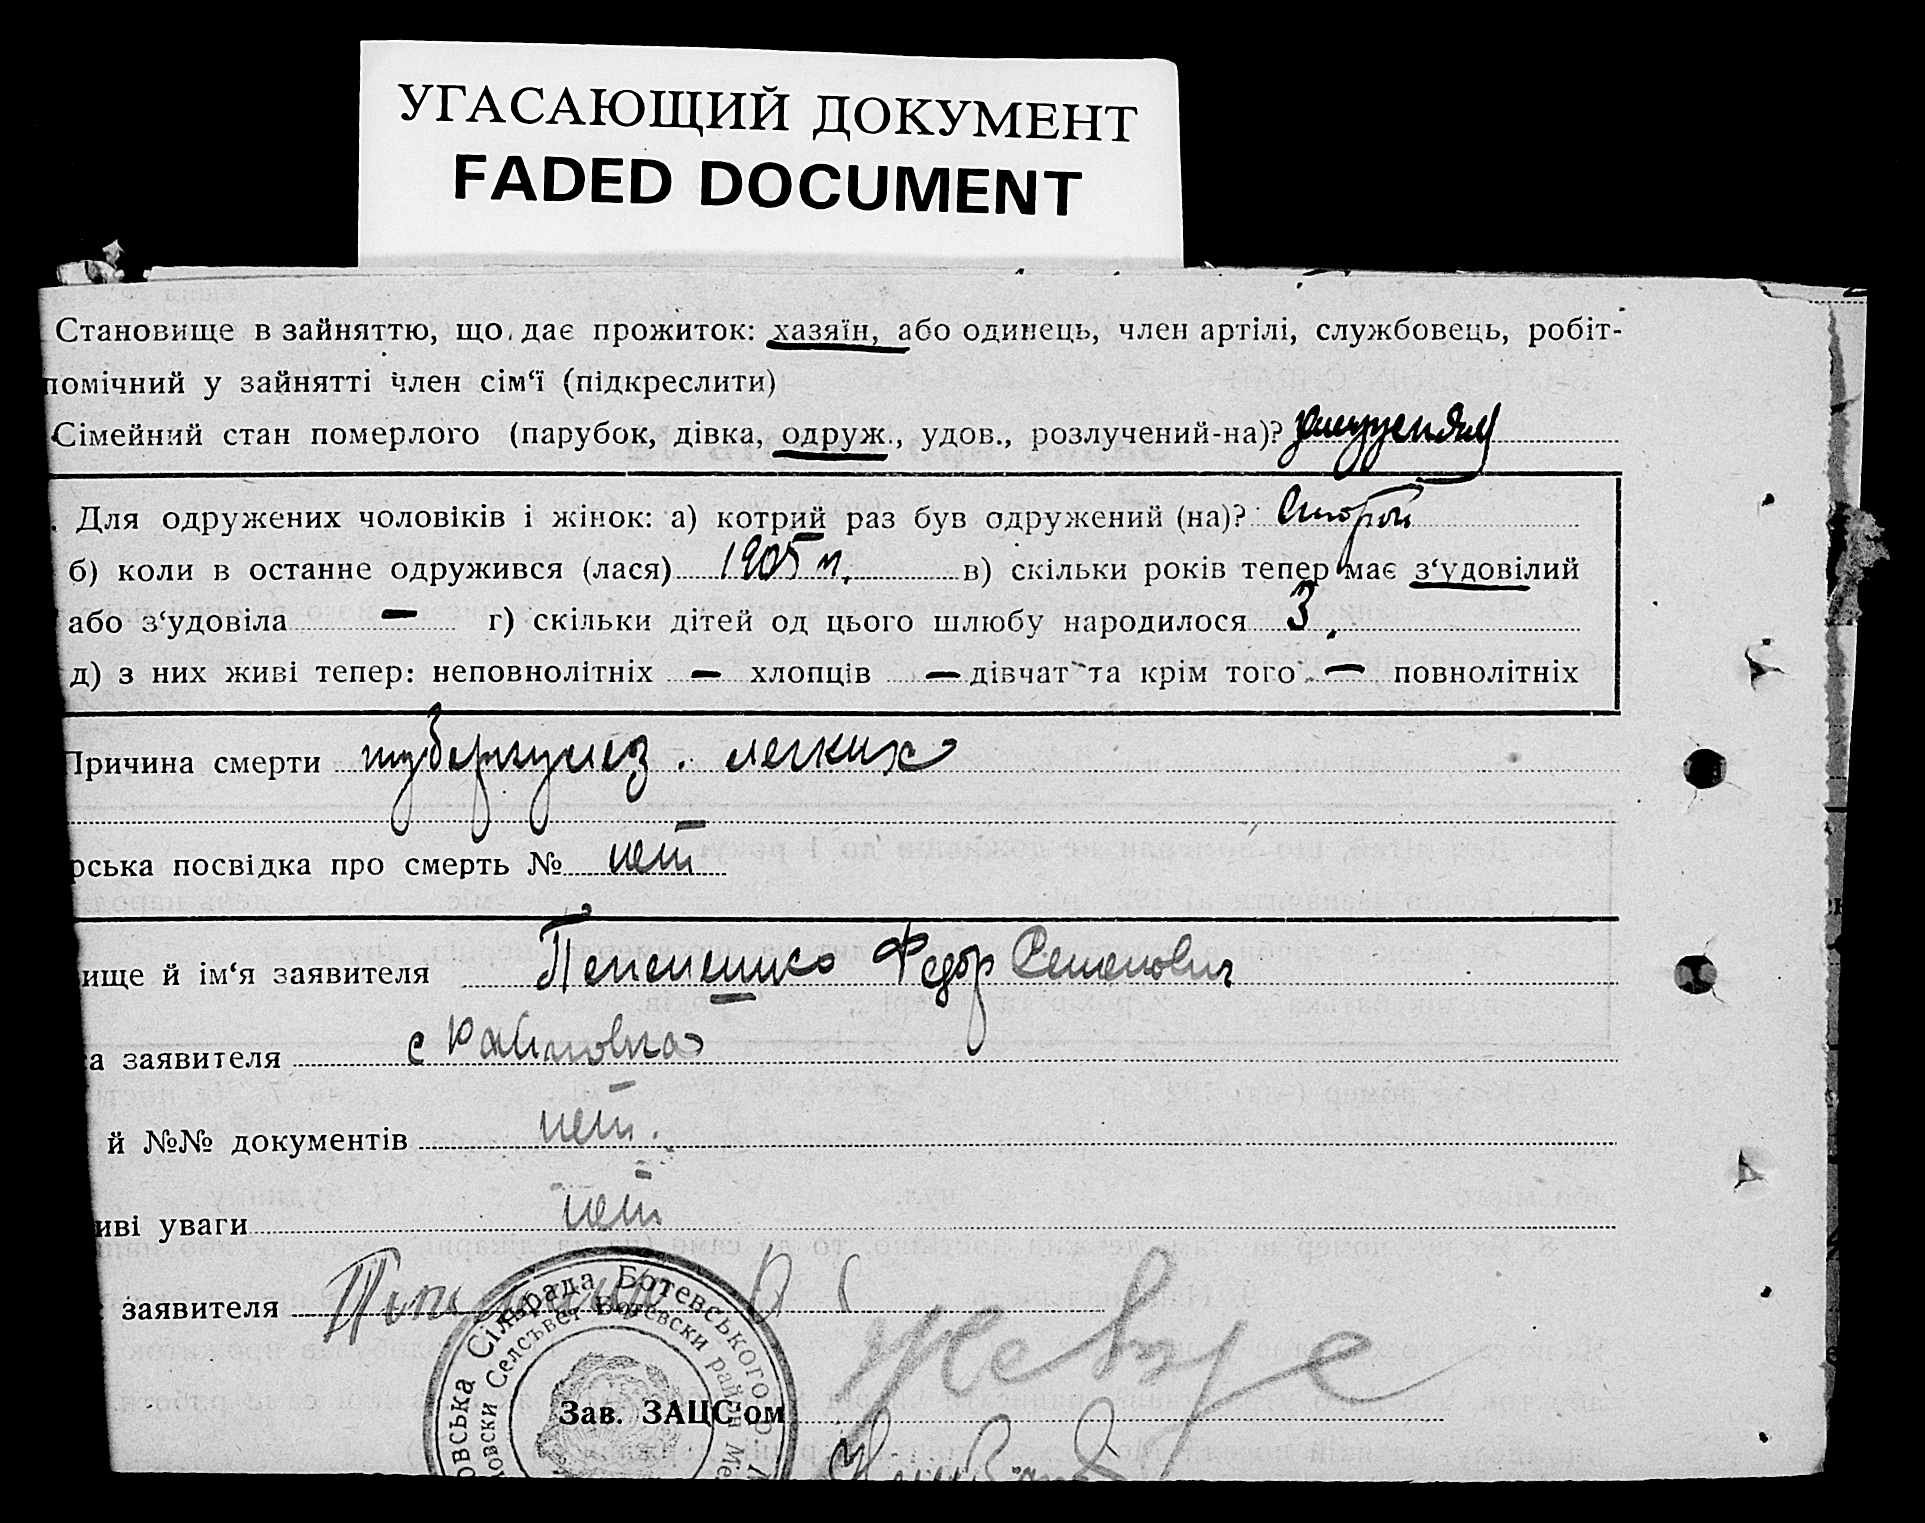 УГАСАЮЩИЙ ДОКУМЕНТ
FADED DOCUMENT
Становище в зайняттю, що дає прожиток: хазяїн, або одинець, член артілі, службовець, робіт-
помічний у зайнятті член сім‘ї (підкреслити)
Сімейний стан померлого (парубок, дівка, одруж., удов., розлучений-на)?
. Для одружених чоловіків і жінок: а) котрий раз був одружений (на)?
б) коли в останнє одружився (лася) 1905 в) скільки років тепер має з‘удовілий
або з‘удовіла — г) скільки дітей од цього шлюбу народилося 3.
д) з них живі тепер: неповнолітніх — хлопців — дівчат та крім того — повнолітніх
Причина смерти туберкулез. легких
рська посвідка про смерть № нет
ище й ім‘я заявителя Федор Семенович
а заявителя с
й №№ документів нет.
иві уваги нет
заявителя
овська Сільрада Ботевського
овски Селсъвет Ботевски район Ме
Зав. ЗАЦС‘ом